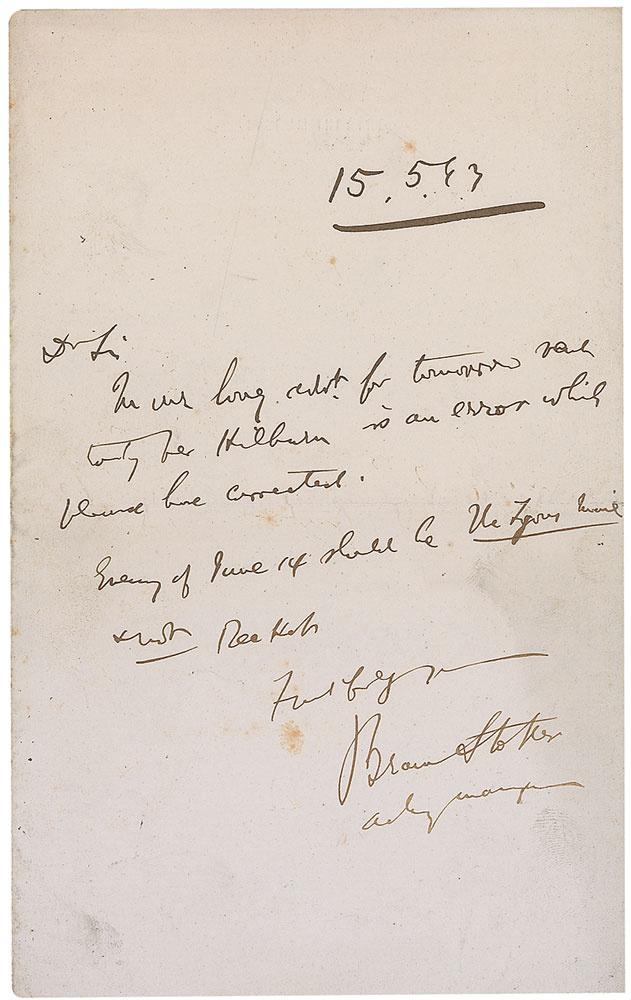 15.5.83
Dr Sir
In our long advt. for tomorrow
is an error which
please have corrected.
Evening of June 14 should be The Lyons Mail
& not
Bram Stoker
acting manager